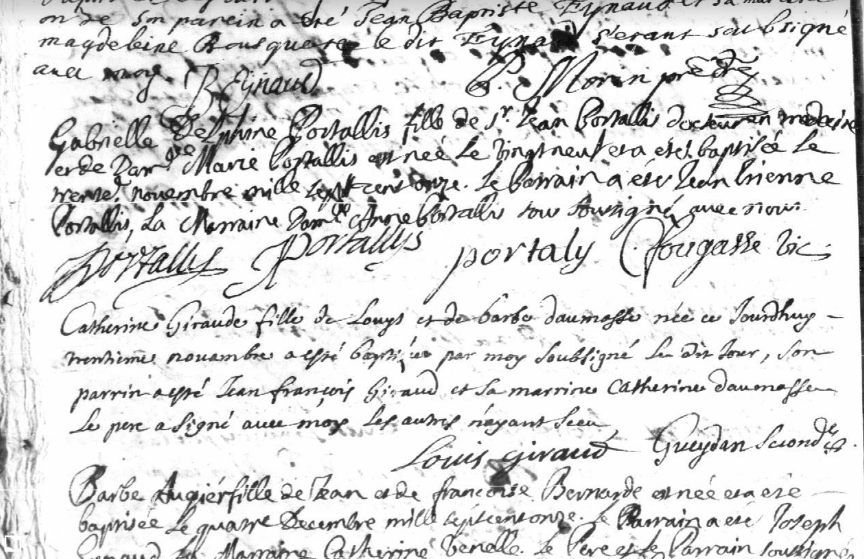 son parein a été Jean Baptiste Eynaud et sa
magdeleine Rousque le dit Eynaud s'etant soubsigné
avec moy Reynaud P. Morin pre
Gabrielle Delphine Portallis fille de Sr. Jean Portallis docteur en medecine
et de Dam.lle Marie Portallis est née Le vingt neuf et a eté baptisée Le
trente novembre mille sept cent onze. Le Parrain a été Jean Etienne
Portallis, La Marraine Dam.lle Anne Portallis tous soussigné avec nous.
Portallis Portallys portaly Fougasse vic
Catherine Giraude fille de Louys et de barbe daumasse née ce Jourdhuy
trentieme novambre a esté baptisée par moy soubsigné Le dit Jour, son
parrin a esté Jean françois Giraud et sa marrine Catherine daumasse
Le pere a signé avec moy Les autres n'ayant sceu
Louis giraud Gueydan Second.
Barbe Augier fille de Jean et de françoise Bernarde est née et a eté
baptisée Le quatre Decembre mille sept cent onze. Le Parrain a eté Joseph
La Marraine Catherine Venelle. Le Pere et le Parrain